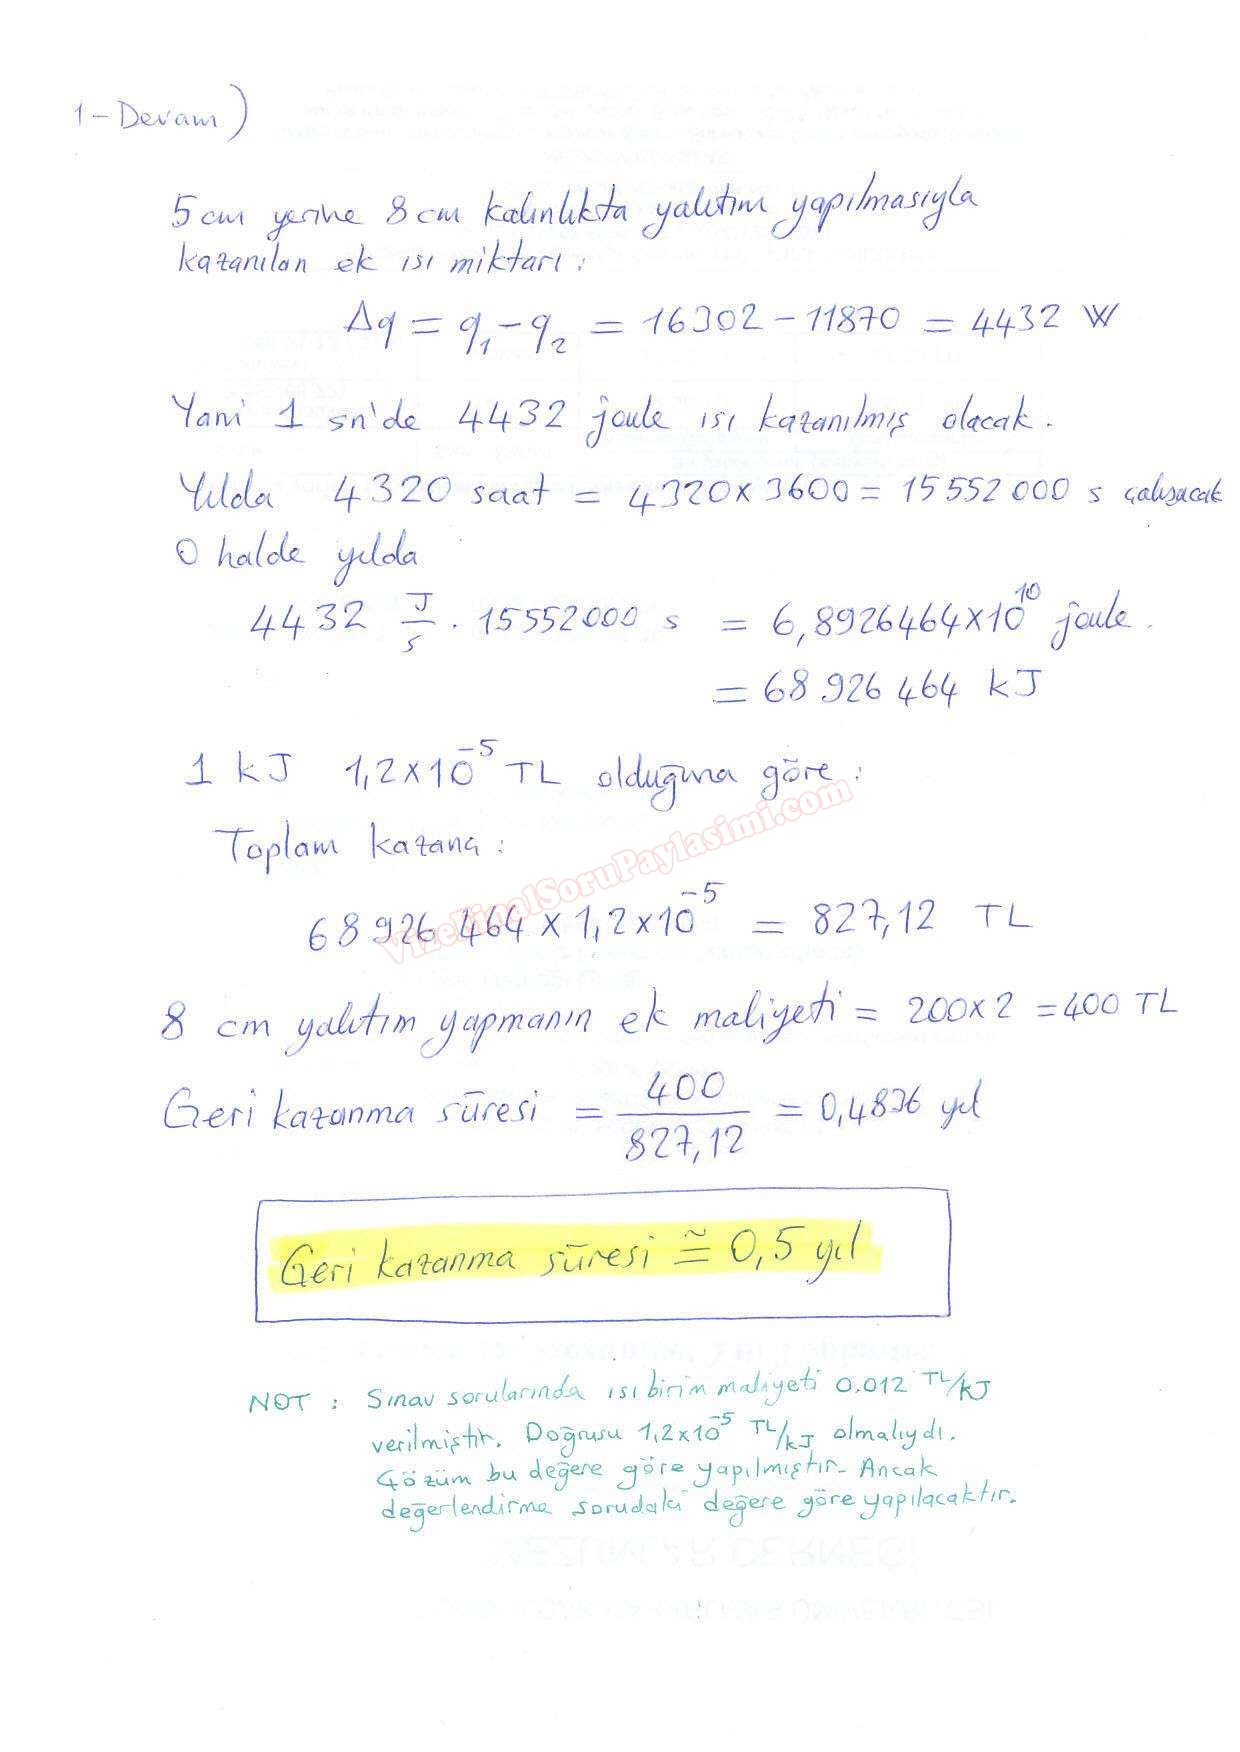 1-Devam)
5cm yerine 8cm kalınlıkta yalıtım yapılmasıyla
kazanılan ek ısı miktarı:
Δq = q₁ - q₂ = 16302 - 11870 = 4432 W
Yani 1 sn'de 4432 joule ısı kazanılmış olacak.
Yılda 4320 saat = 4320 x 3600 = 15552000 s çalışacak
O halde yılda
4432 J/s . 15552000 s = 6,8926464 x 10¹⁰ joule.
= 68 926 464 kJ
1 kJ 1,2 x 10⁻⁵ TL olduğuna göre:
Toplam kazanç:
68 926 464 x 1,2 x 10⁻⁵ = 827,12 TL
VizeFinalSoruPaylasimi.com
8 cm yalıtım yapmanın ek maliyeti = 200 x 2 = 400 TL
Geri kazanma süresi = 400/827,12 = 0,4836 yıl
Geri kazanma süresi ≅ 0,5 yıl
NOT : Sınav sorularında ısı birim maliyeti 0.012 TL/kJ
verilmiştir. Doğrusu 1,2x10⁻⁵ TL/kJ olmalıydı.
Çözüm bu değere göre yapılmıştır. Ancak
değerlendirme sorudaki değere göre yapılacaktır.